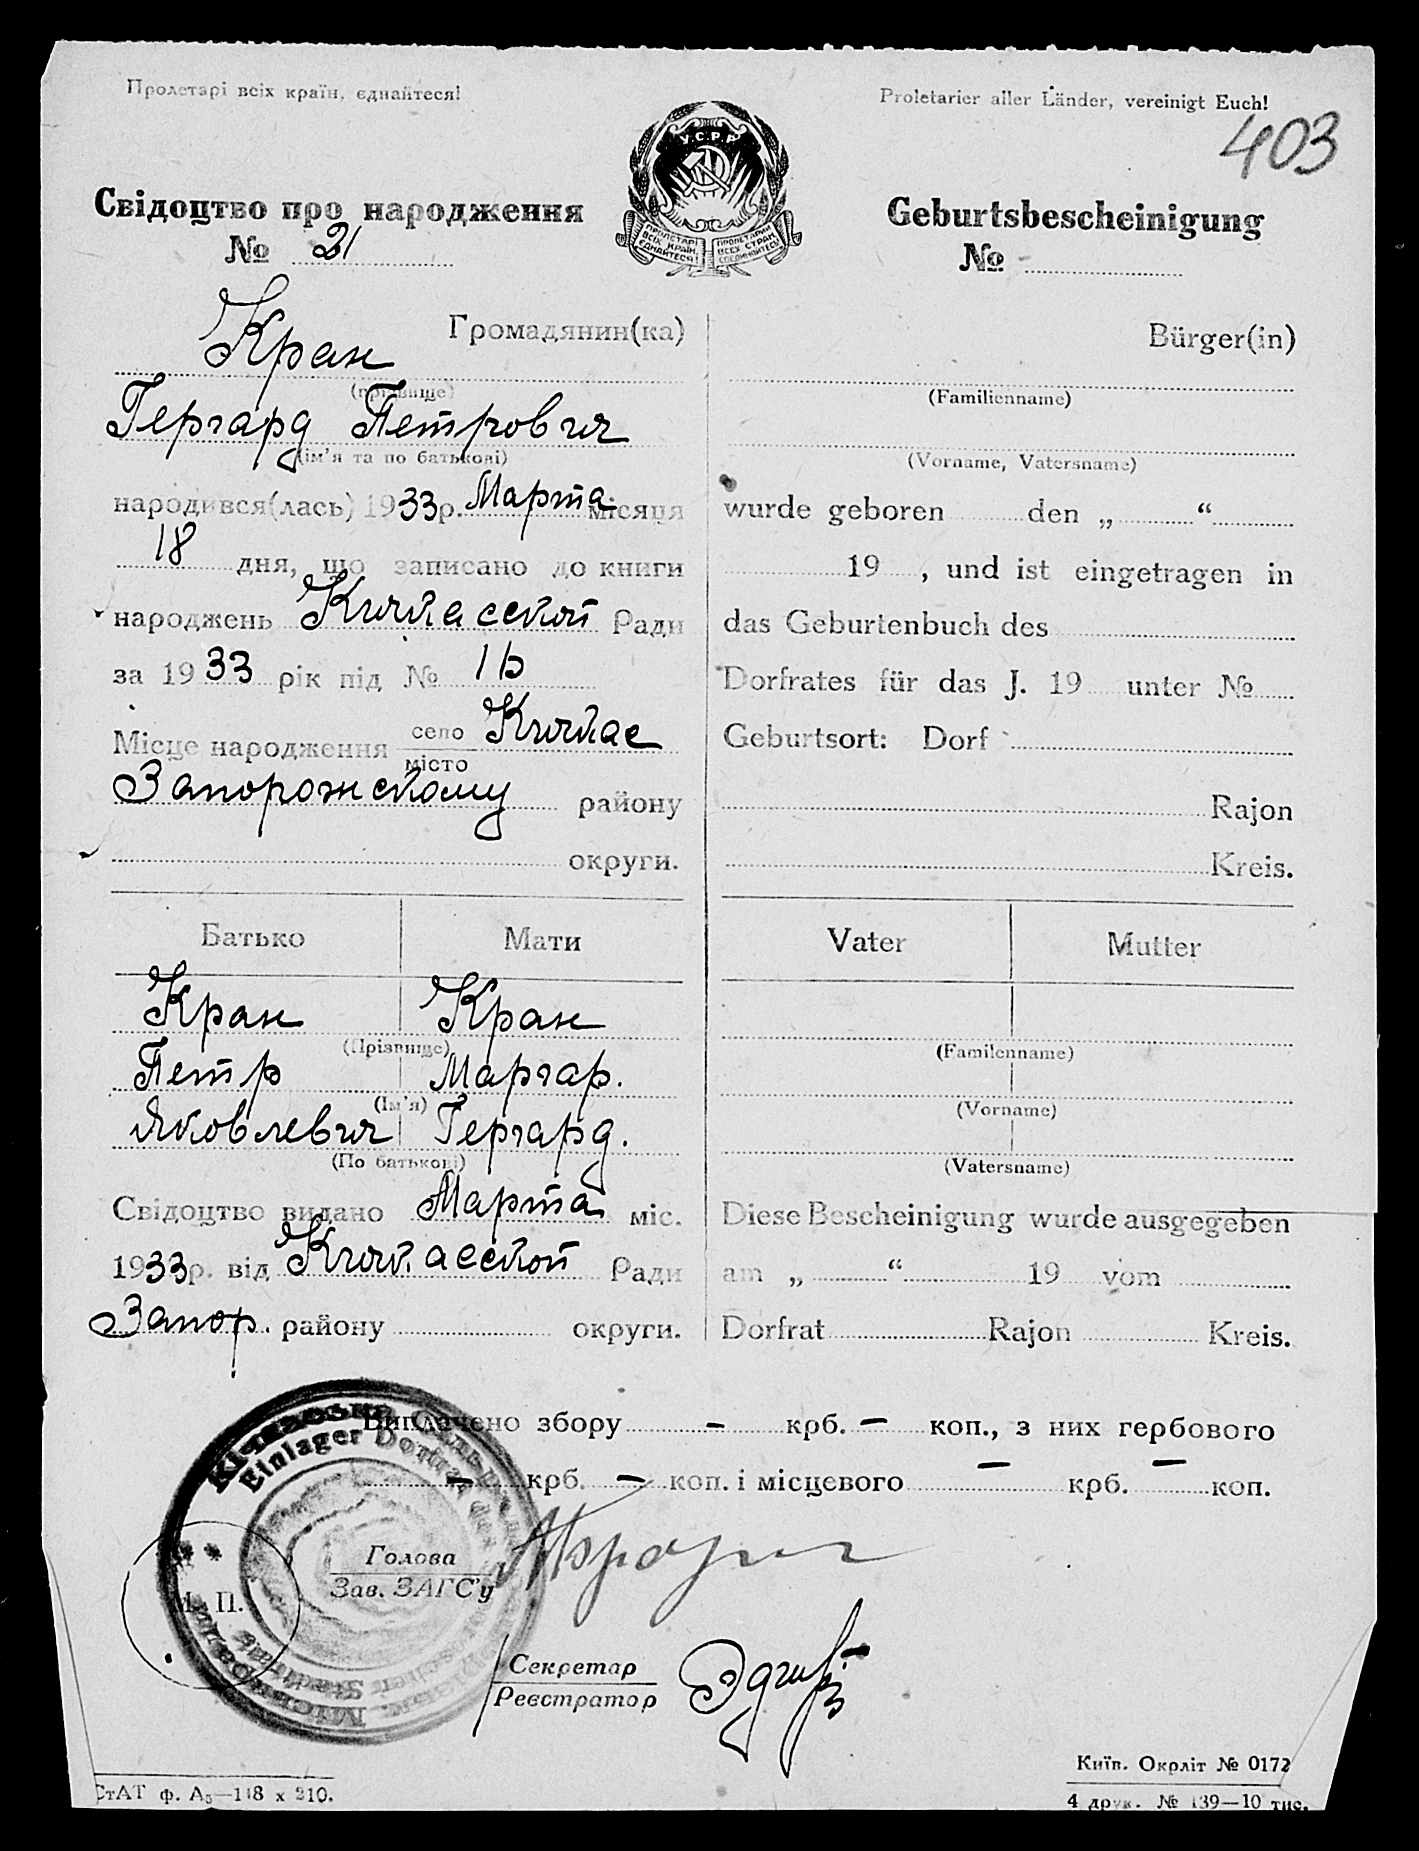 Пролетарі всіх країн, єднайтеся!
Proletarier aller Länder, vereinigt Euch!
403
У.С.Р.Р.
ПРОЛЕТАРІ ВСІХ КРАЇН, ЄДНАЙТЕСЯ!
ПРОЛЕТАРИИ ВСЕХ СТРАН, СОЕДИНЯЙТЕСЬ!
Свідоцтво про народження
№ 21
Geburtsbescheinigung
№
Громадянин(ка)
Кран
(прізвище)
Гергард Петрович
(ім'я та по батькові)
народився(лась) 1933р. Марта місяця
18 дня, що записано до книги
народжень Кичкасской Ради
за 1933 рік під № 16
Місце народження село місто Кичкас
Запорожскому району
округи.
Bürger(in)
(Familienname)
(Vorname, Vatersname)
wurde geboren den „ “
19 , und ist eingetragen in
das Geburtenbuch des
Dorfrates für das J. 19 unter №
Geburtsort: Dorf
Rajon
Kreis.
Батько Мати
Кран Кран
(Прізвище)
Петр Маргар.
(Ім'я)
Яковлевич Гергард.
(По батькові)
Свідоцтво видано Марта міс.
1933р. від Кичкасской Ради
Запор. району округи.
Vater Mutter
(Familenname)
(Vorname)
(Vatersname)
Diese Bescheinigung wurde ausgegeben
am „ “ 19 vom
Dorfrat Rajon Kreis.
Виплачено збору – крб. – коп., з них гербового
– крб. – коп. і місцевого – крб. – коп.
Einlager Dorfrat
Голова
Зав. ЗАГС'у
М. П.
Секретар
Реєстратор
СтАТ ф. А5—148 x 210.
Київ. Окрліт № 0172
4 друк. № 139—10 тис.